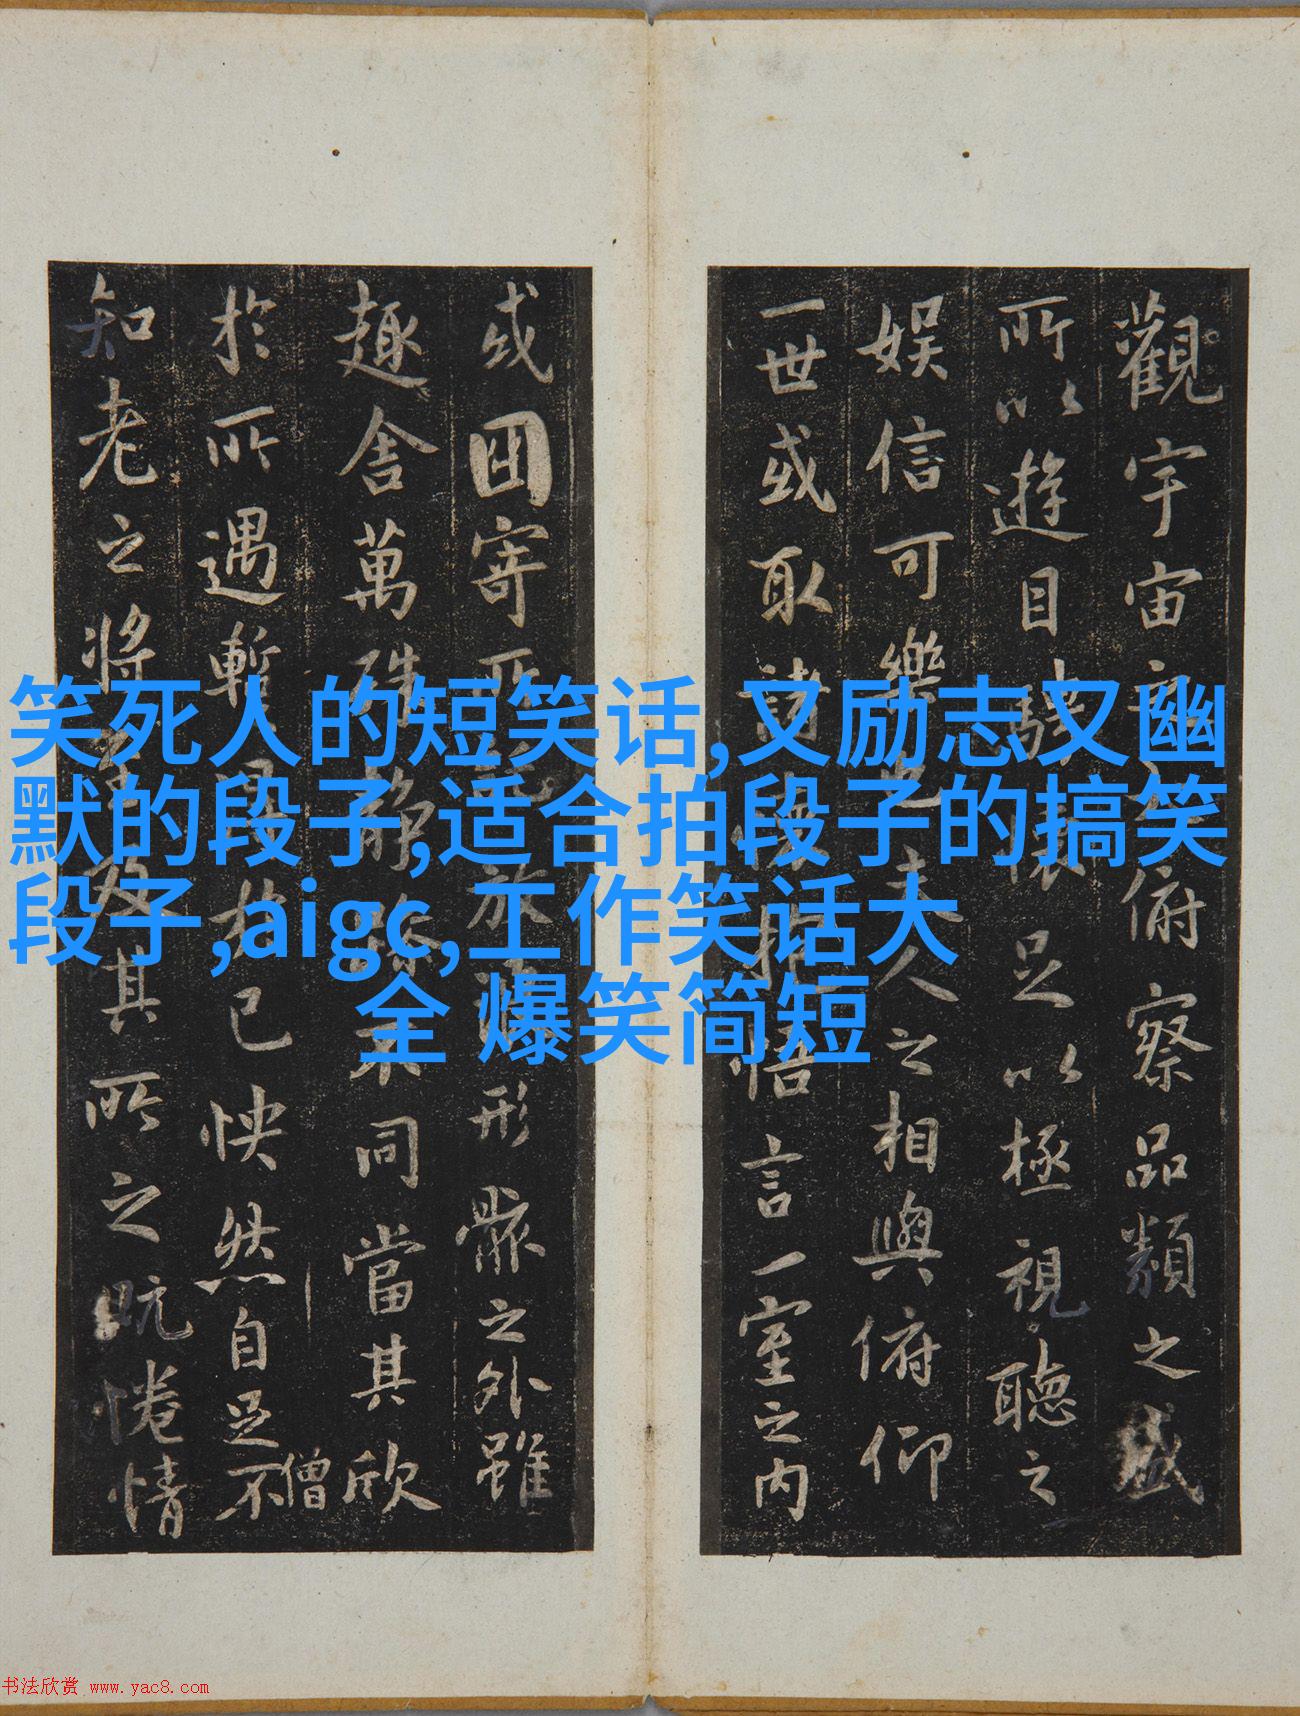 觀宇宙俯察品類之盛
所以遊目騁懷足以極視聽之
娛信可樂也夫人之相與俯仰
一世或取諸懷抱悟言一室之內
或因寄所託放浪形骸之外雖
趣舍萬殊靜躁不同當其欣
於所遇暫得於己快然自足不
僧
知老之將至及其所之既惓情
笑死人的短笑话,又励志又幽
默的段子,适合拍段子的搞笑
段子,aigc,工作笑话大
全 爆笑简短
书法欣赏 www.yac8.com